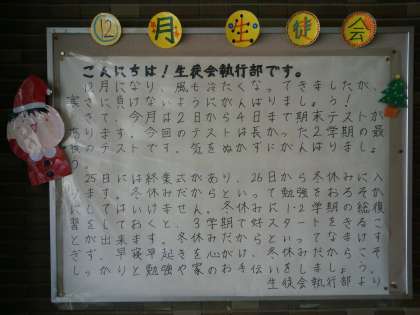 ⑫月生徒会
こんにちは！生徒会執行部です。
12月になり、風も冷たくなってきましたが、
寒さに負けないようにがんばりましょう！
さて、今月は2日から4日まで期末テストが
あります。今回のテストは長かった2学期の最
後のテストです。気をぬかずにがんばりましょ
う。
25日には終業式があり、26日から冬休みに入
ります。冬休みだからといって勉強をおろそか
にしてはいけません。冬休みに1・2学期の総復
習をしておくと、3学期で好スタートをきるこ
とが出来ます。冬休みだからといってなまけす
ぎず、早寝早起きを心がけ、冬休みだからこそ
しっかりと勉強や家のお手伝いをしましょう。
生徒会執行部より